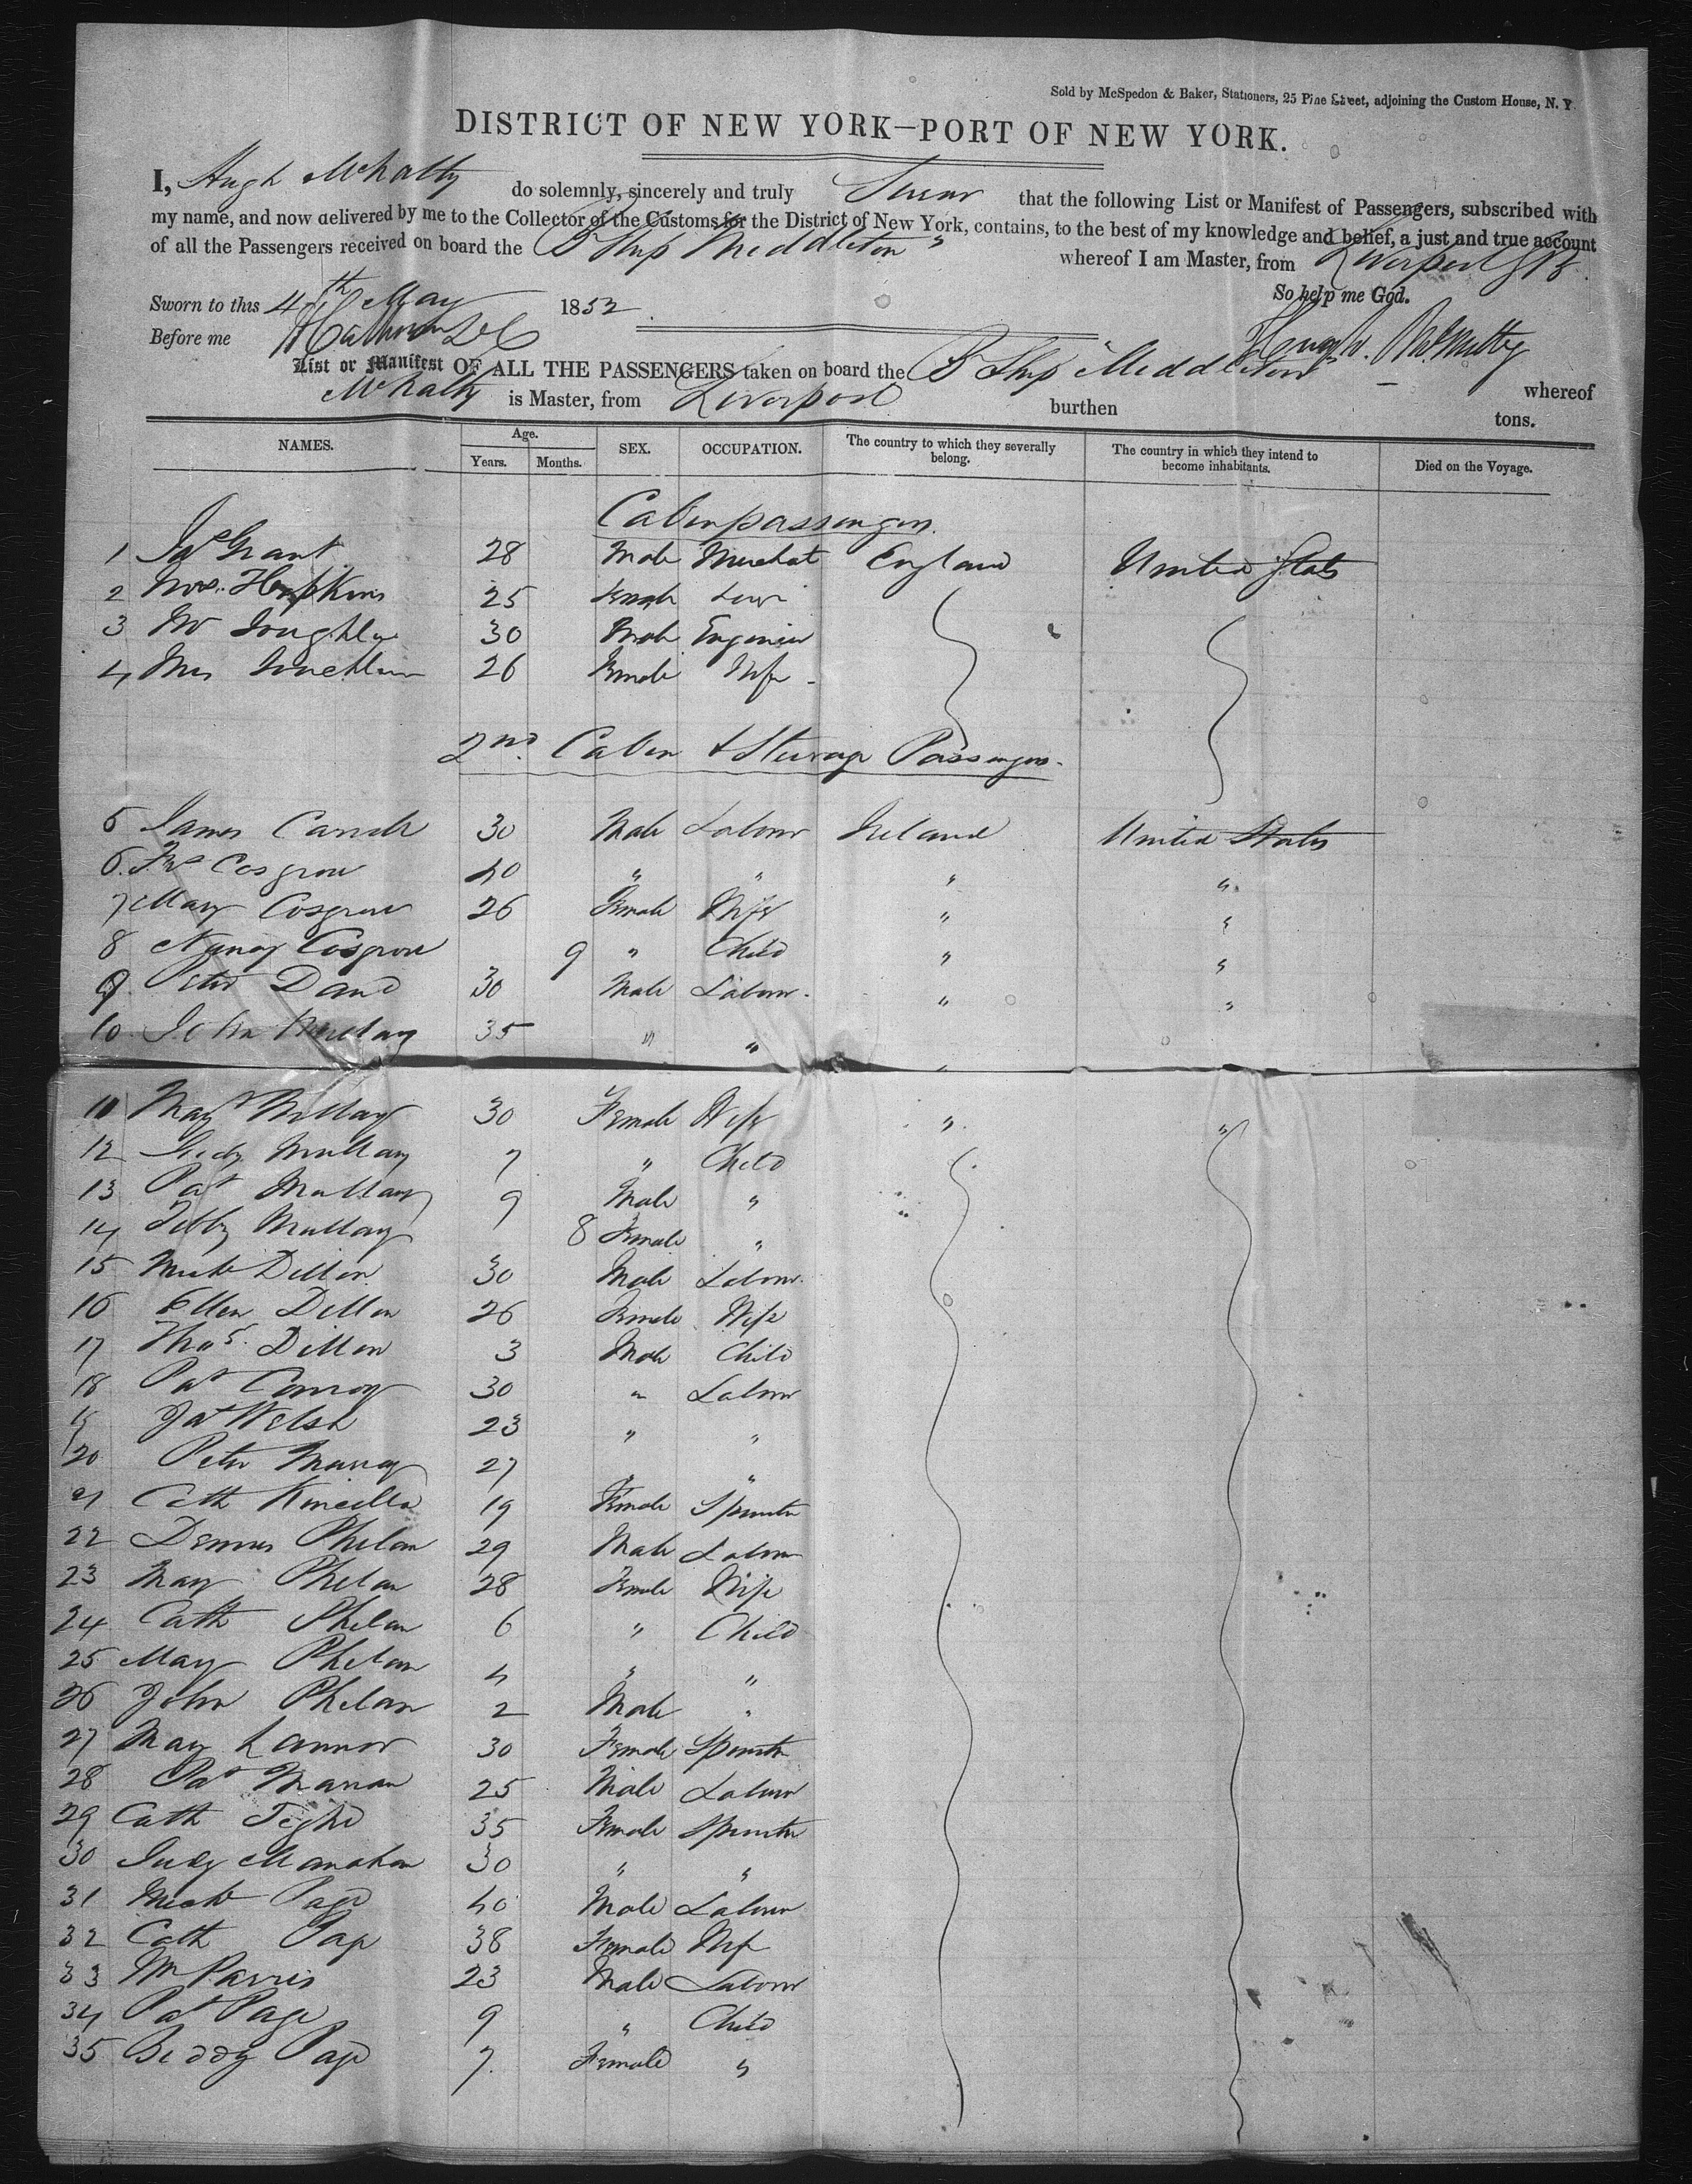 Sold by McSpedon & Baker, Stationers, 25 Pine Street, adjoining the Custom House, N. Y.
DISTRICT OF NEW YORK—PORT OF NEW YORK.
I, Hugh McNalty do solemnly, sincerely and truly Swear that the following List or Manifest of Passengers, subscribed with
my name, and now delivered by me to the Collector of the Customs for the District of New York, contains, to the best of my knowledge and belief, a just and true account
of all the Passengers received on board the Br Ship Middleton" whereof I am Master, from Liverpool GB
So help me God.
Sworn to this 4th May 1852
Before me
Hugh McNulty
List or Manifest OF ALL THE PASSENGERS taken on board the Br Ship "Middleton" whereof
McNalty is Master, from Liverpool burthen tons.
NAMES. Age. Years. Months. SEX. OCCUPATION. The country to which they severally belong. The country in which they intend to become inhabitants. Died on the Voyage.
Cabin passengers.
1 Jas Grant 28 Male Merchat England United States
2 Mrs. Hopkins 25 Female
3 Mr 30 Male Engineer
4 Mrs 26 Female Wife
2nd. Cabin & Steerage Passengers.
5 James 30 Male Labour Ireland United States
6. Cosgrove 40 " " " "
7 Mary Cosgrove 26 Female Wife " "
8 Nancy Cosgrove 9 " Child " "
9. Peter 30 Male Labour. " "
10. John Mullany 35 " " "
11 Mary Mullany 30 Female Wife " "
12 Mullany 7 " Child
13 Pat Mullany 9 Male "
14 Mullany 8 Female "
15 Mick Dillon 30 Male Labour
16 Ellen Dillon 26 Female Wife
17 Thos. Dillon 3 Male Child
18 Pat Conroy 30 " Labour
19 Welsh 23 " "
20 Peter Murray 27 " "
21 Cath Kincella 19 Female Spinster
22 Dennis Phelan 29 Male Labour
23 Mary Phelan 28 Female Wife
24 Cath Phelan 6 " Child
25 Mary Phelan 4 " "
26 John Phelan 2 Male "
27 Mary 30 Female Spinster
28 Pat 25 Male Labour
29 Cath Tighe 35 Female Spinster
30 Judy Manahan 30 " "
31 Mick Page 40 Male Labour
32 Cath Page 38 Female Wife
33 Wm 23 Male Labour
34 Pat Page 9 " Child
35 Biddy Page 7. Female "